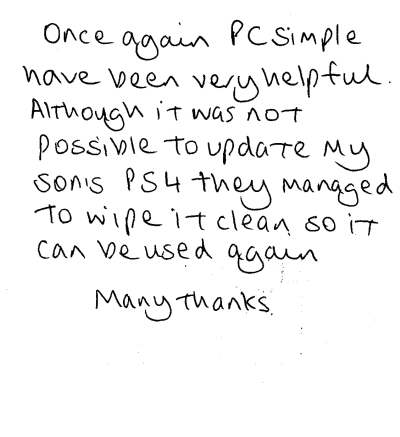 Once again PC Simple
have been very helpful.
Although it was not
possible to update my
son's PS4 they managed
to wipe it clean so it
can be used again
Many thanks.